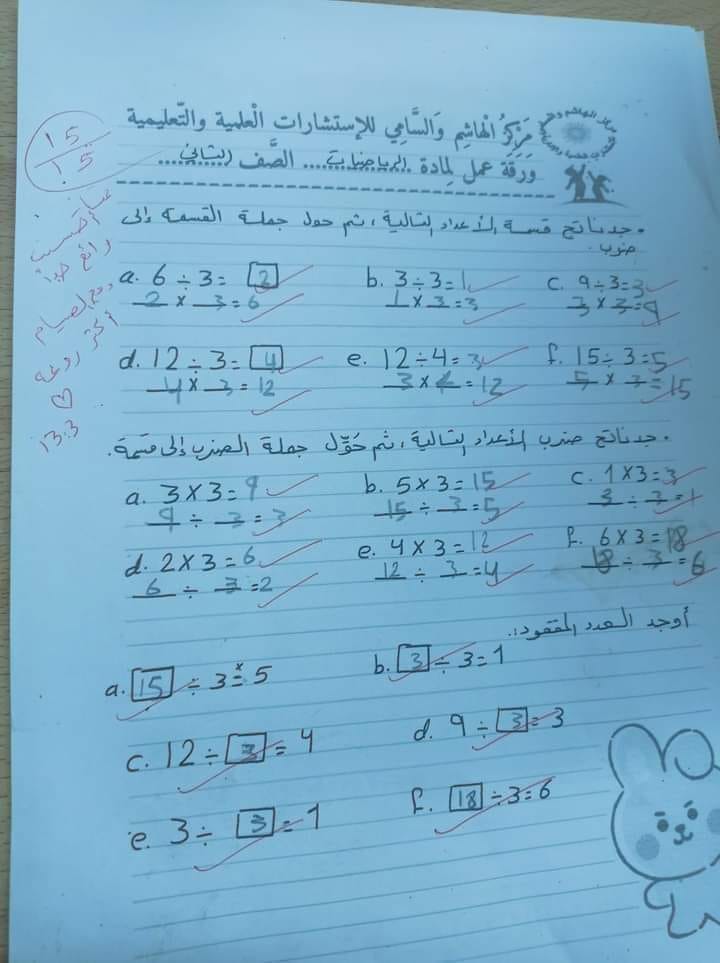 مَرْكَزُ الْهَاشِم وَالسَّامِي للإستشارات الْعلمية والتّعليمية
وَرَقَة عمل لِمادة الرياضيات.... الصَّف الثاني.....
15
15
أحسنت
رائع جداً
مع الصيام
أكثر روعة
♡
13.3
. جد ناتج قسمة الأعداد التالية ، ثم حول جملة القسمة إلى
ضرب.
a. 6 ÷ 3 = 2 b. 3 ÷ 3 = 1 c. 9 ÷ 3 = 3
2 × 3 = 6 1 × 3 = 3 3 × 3 = 9
d. 12 ÷ 3 = 4 e. 12 ÷ 4 = 3 f. 15 ÷ 3 = 5
4 × 3 = 12 3 × 4 = 12 5 × 3 = 15
. جد ناتج ضرب الأعداد التالية ، ثم حَوِّل جملة الضرب إلى قسمة.
a. 3 × 3 = 9 b. 5 × 3 = 15 c. 1 × 3 = 3
9 ÷ 3 = 3 15 ÷ 3 = 5 3 ÷ 3 = 1
d. 2 × 3 = 6 e. 4 × 3 = 12 f. 6 × 3 = 18
6 ÷ 3 = 2 12 ÷ 3 = 4 18 ÷ 3 = 6
أوجد العدد المفقود:.
a. 15 ÷ 3 = 5 b. 3 ÷ 3 = 1
c. 12 ÷ 3 = 4 d. 9 ÷ 3 = 3
e. 3 ÷ 3 = 1 f. 18 ÷ 3 = 6